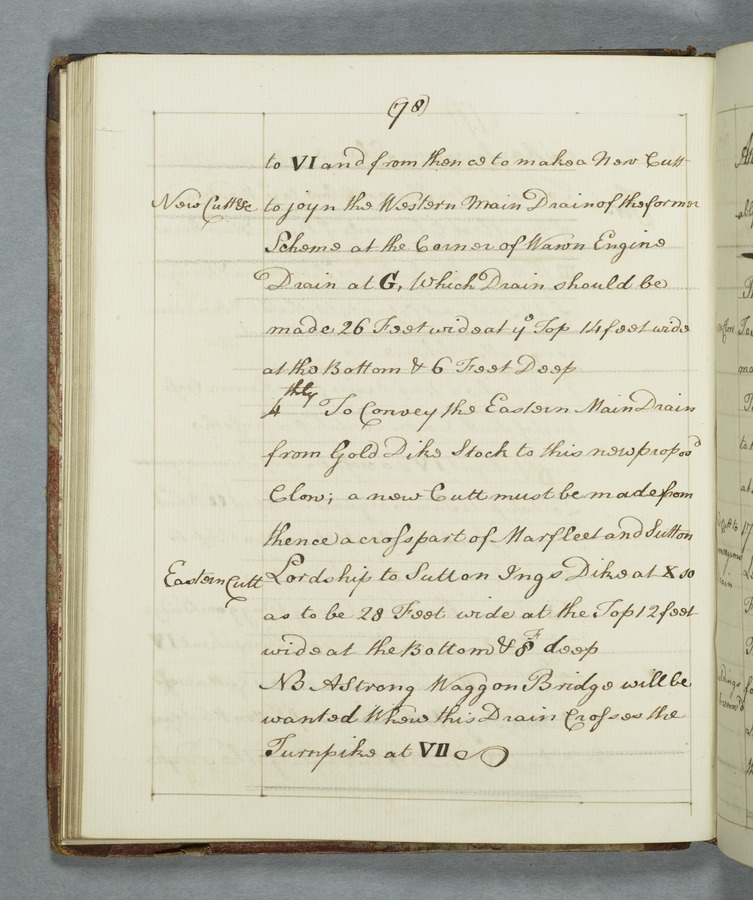 (78)
to VI and from thence to make a New Cutt
New Cutt &c
to joyn the Western Main Drain of the former
Scheme at the Corner of Wawn Engine
Drain at G, Which Drain should be
made 26 Feet wide at yᵉ Top 14 feet wide
at the Bottom & 6 Feet Deep
4thly To Convey the Eastern Main Drain
from Gold Dike Stock to this new propos'd
Clow; a new Cutt must be made from
thence across part of Marfleet and Sutton
Eastern Cutt
Lordship to Sutton Ings Dike at X so
as to be 28 Feet wide at the Top 12 feet
wide at the Bottom & 8F deep
NB A Strong Waggon Bridge will be
wanted Where this Drain Crosses the
Turnpike at VII